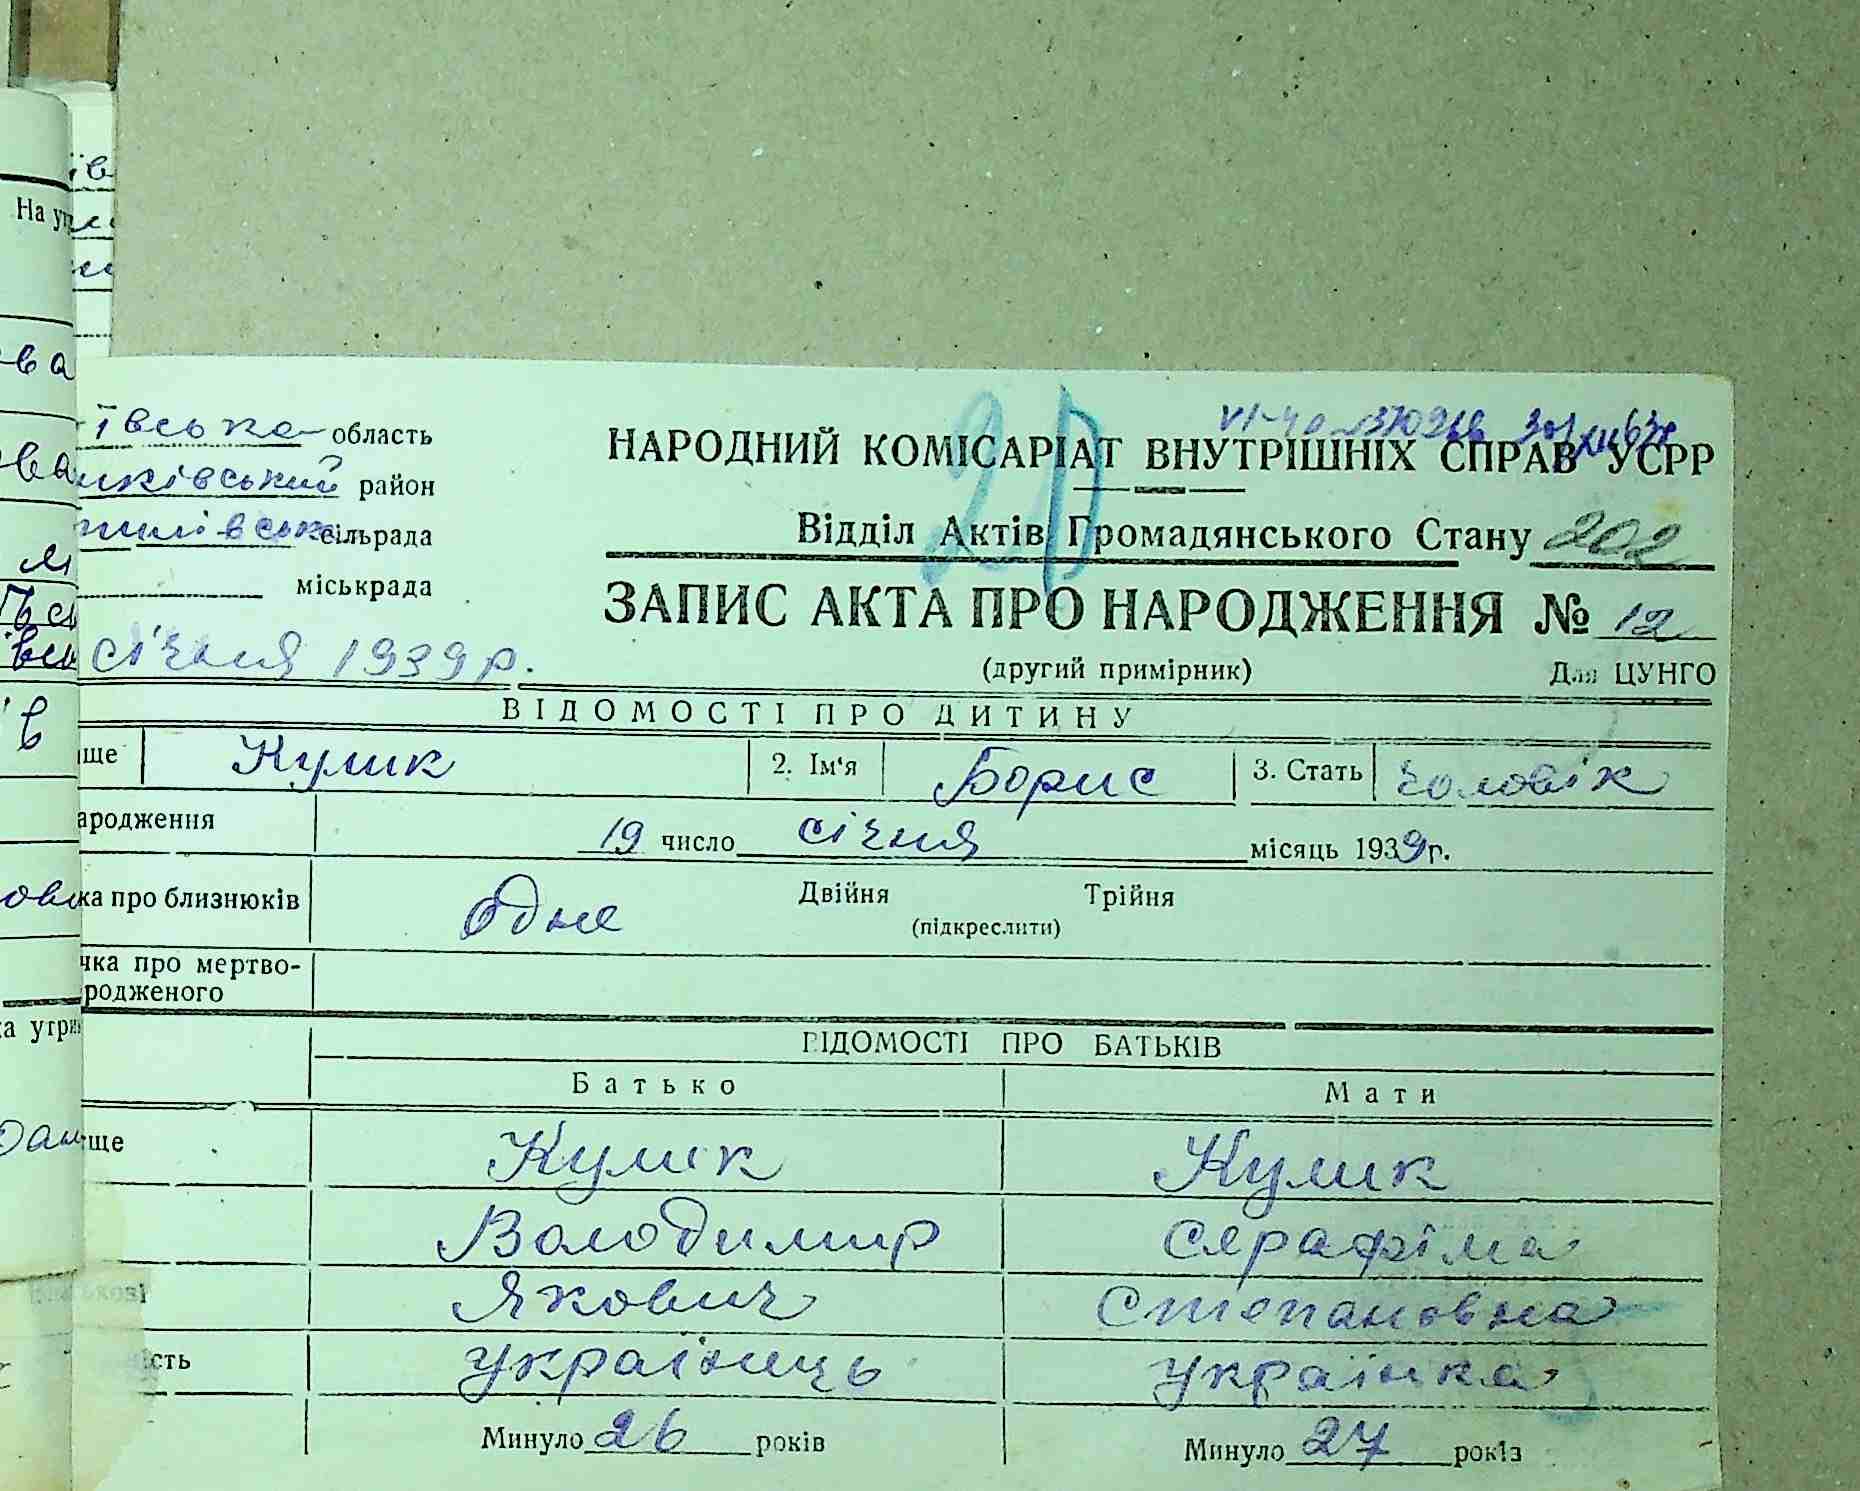 ївська область
нківський район
пилівська сільрада
міськрада
січня 1939 р.
20
НАРОДНИЙ КОМІСАРІАТ ВНУТРІШНІХ СПРАВ УСРР
Відділ Актів Громадянського Стану 202
ЗАПИС АКТА ПРО НАРОДЖЕННЯ № 12
(другий примірник) Для ЦУНГО
ВІДОМОСТІ ПРО ДИТИНУ
ще Кулик 2. Ім'я Борис 3. Стать чоловік
ародження 19 число січня місяць 1939 г.
ка про близнюків одне Двійня Трійня
(підкреслити)
чка про мертво-
родженого
ВІДОМОСТІ ПРО БАТЬКІВ
Батько Мати
ще Кулик Кулик
Володимир Серафіма
Якович Степановна
ість українець українка
Минуло 26 років Минуло 27 років